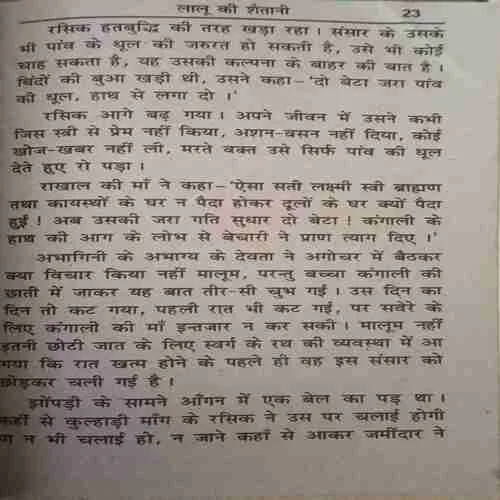 लालू की शैतानी 23
रसिक हतबुद्धि की तरह खड़ा रहा। संसार के उसके
भी पांव के धूल की जरुरत हो सकती है, उसे भी कोई
चाह सकता है, यह उसकी कल्पना के बाहर की बात है।
बिंदों की बुआ खड़ी थी, उसने कहा-'दो बेटा जरा पांव
की धूल, हाथ से लगा दो।'
रसिक आगे बढ़ गया। अपने जीवन में उसने कभी
जिस स्त्री से प्रेम नहीं किया, अशन-वसन नहीं दिया, कोई
खोज-खबर नहीं ली, मरते वक्त उसे सिर्फ पांव की धूल
देते हुए रो पड़ा।
राखाल की माँ ने कहा-'ऐसा सती लक्ष्मी स्त्री ब्राह्मण
तथा कायस्थों के घर न पैदा होकर दूलों के घर क्यों पैदा
हुई! अब उसकी जरा गति सुधार दो बेटा! कंगाली के
हाथ की आग के लोभ से बेचारी ने प्राण त्याग दिए।'
अभागिनी के अभाग्य के देवता ने अगोचर में बैठकर
क्या विचार किया नहीं मालूम, परन्तु बच्चा कंगाली की
छाती में जाकर यह बात तीर-सी चुभ गई। उस दिन का
दिन तो कट गया, पहली रात भी कट गई, पर सवेरे के
लिए कंगाली की माँ इन्तजार न कर सकी। मालूम नहीं
इतनी छोटी जात के लिए स्वर्ग के रथ की व्यवस्था में आ
गया कि रात खत्म होने के पहले ही वह इस संसार को
छोड़कर चली गई है।
झोंपड़ी के सामने आँगन में एक बेल का पड़ था।
कहीं से कुल्हाड़ी माँग के रसिक ने उस पर चलाई होगी
न भी चलाई हो, न जाने कहाँ से आकर जमींदार ने